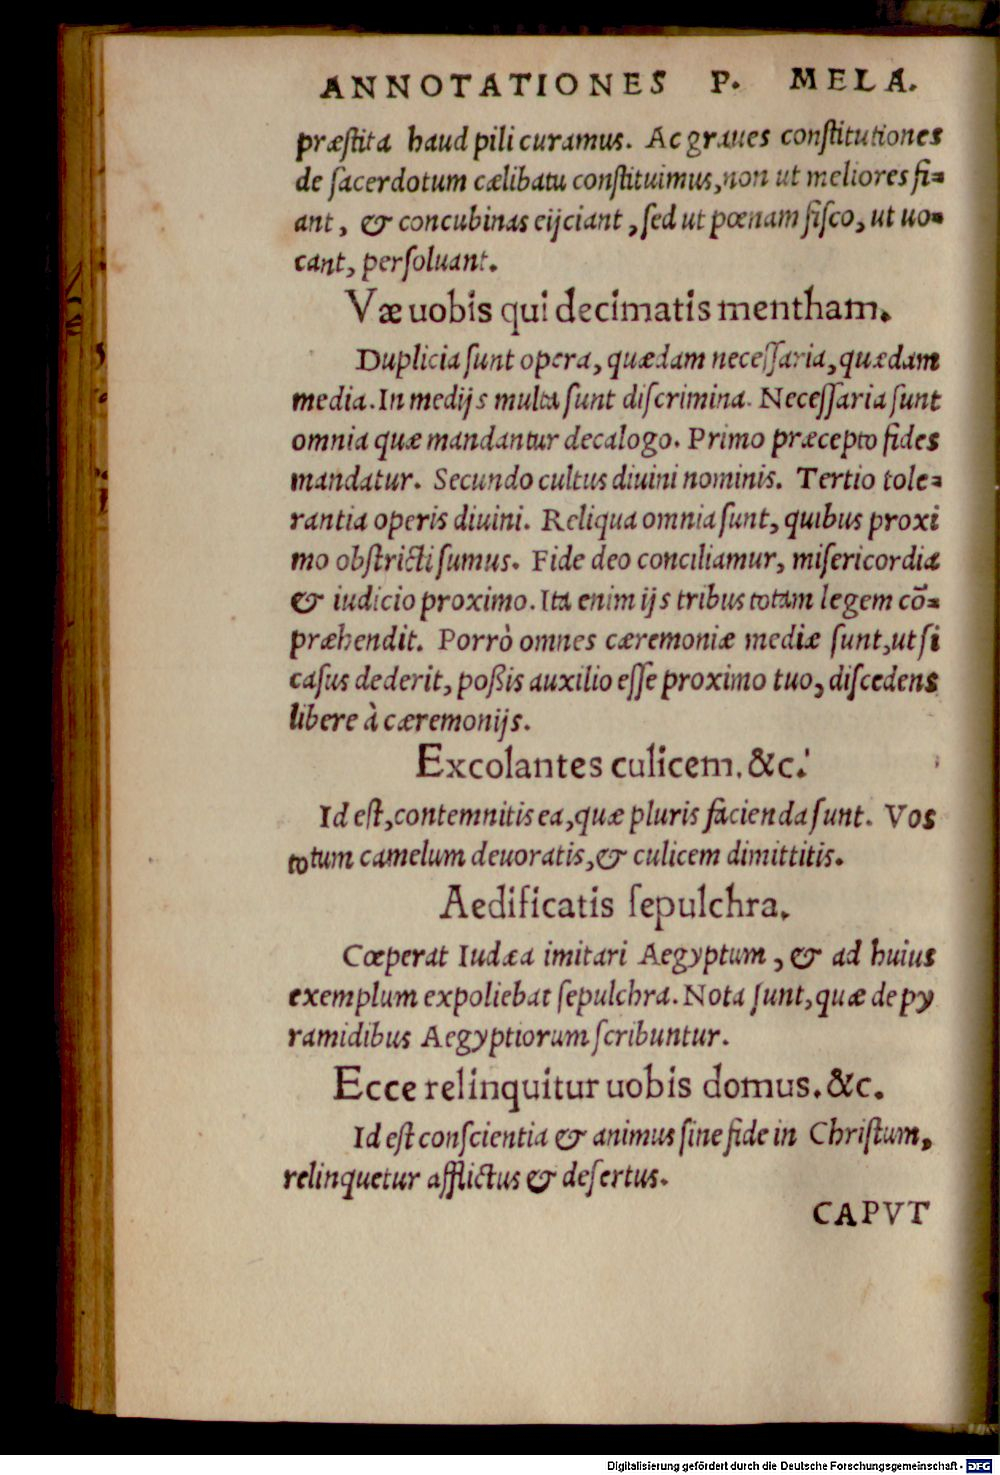 ANNOTATIONES P. MELA.
præſtita haud pili curamus. Ac graues conſtitutiones
de ſacerdotum cælibatu conſtituimus, non ut meliores fi=
ant, & concubinas eijciant, ſed ut pœnam fiſco, ut uo=
cant, perſoluant.
Væ uobis qui decimatis mentham.
Duplicia ſunt opera, quædam neceſſaria, quædam
media. In medijs multa ſunt diſcrimina. Neceſſaria ſunt
omnia quæ mandantur decalogo. Primo præcepto fides
mandatur. Secundo cultus diuini nominis. Tertio tole=
rantia operis diuini. Reliqua omnia ſunt, quibus proxi
mo obſtricti ſumus. Fide deo conciliamur, miſericordia
& iudicio proximo. Ita enim ijs tribus totam legem cō=
præhendit. Porrò omnes cæremoniæ mediæ ſunt, ut ſi
caſus dederit, poßis auxilio eſſe proximo tuo, diſcedens
libere à cæremonijs.
Excolantes culicem. &c.
Id eſt, contemnitis ea, quæ pluris facienda ſunt. Vos
totum camelum deuoratis, & culicem dimittitis.
Aedificatis ſepulchra.
Cœperat Iudæa imitari Aegyptum, & ad huius
exemplum expoliebat ſepulchra. Nota ſunt, quæ de py
ramidibus Aegyptiorum ſcribuntur.
Ecce relinquitur uobis domus. &c.
Id eſt conſcientia & animus ſine fide in Chriſtum,
relinquetur afflictus & deſertus.
CAPVT
Digitalisierung gefördert durch die Deutsche Forschungsgemeinschaft - DFG